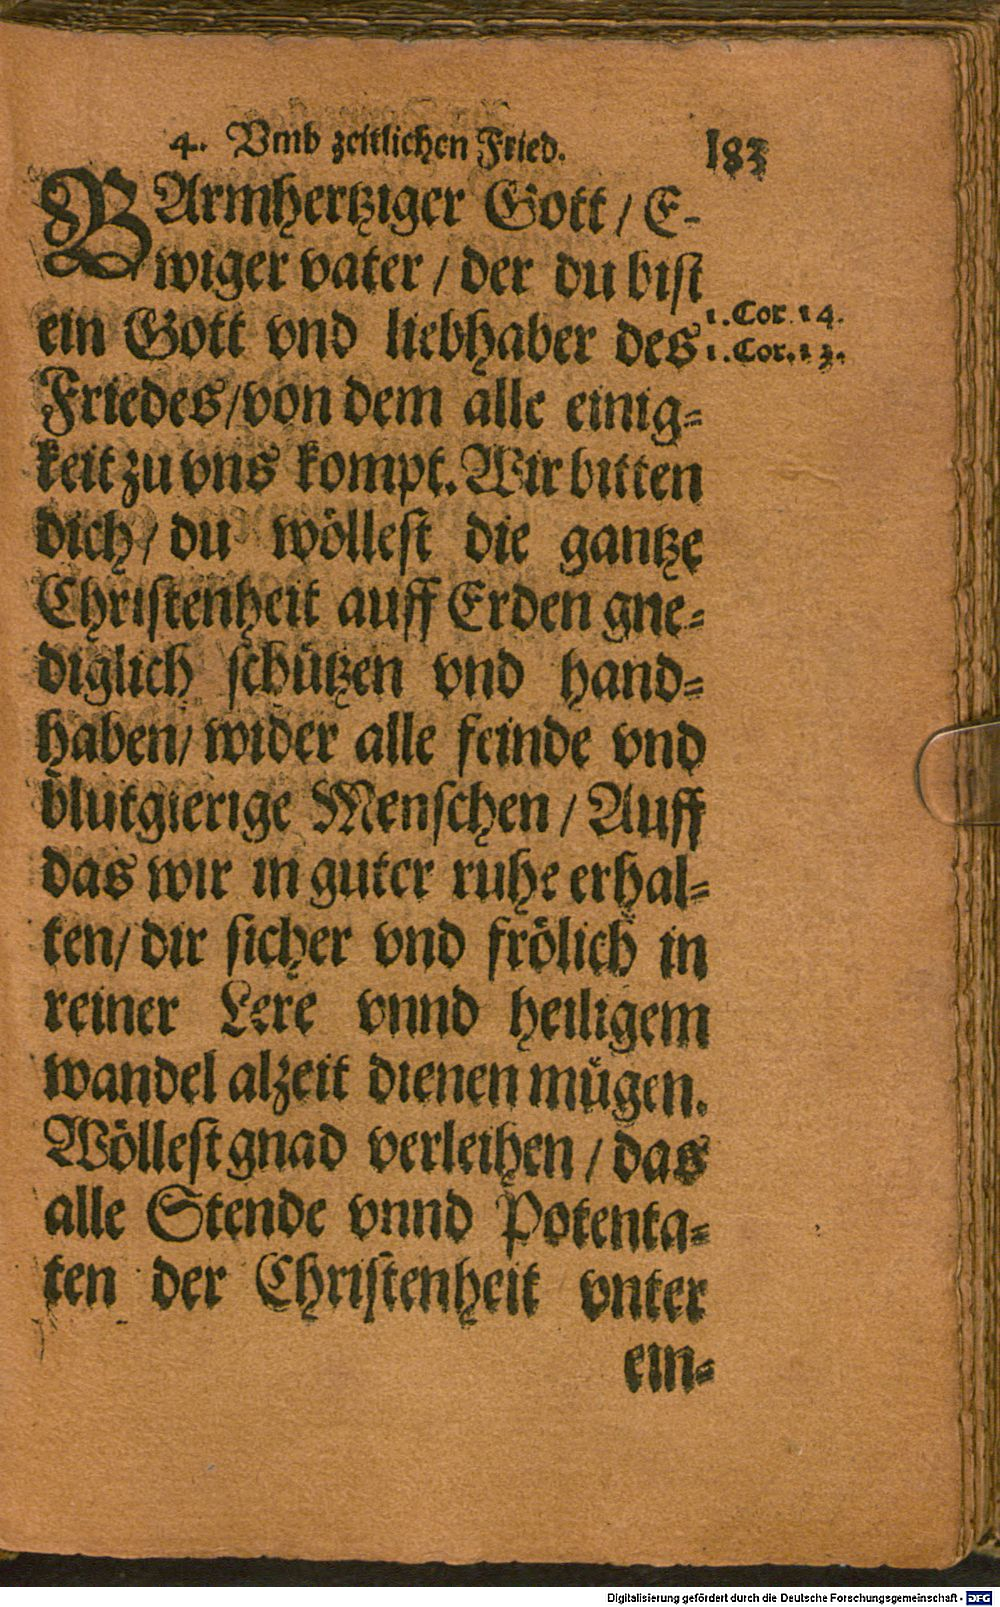 4. Vmb zeitlichen Fried. 183
BArmhertziger Gott / E-
wiger vater / der du bist
ein Gott vnd liebhaber des
1. Cor. 14.
1. Cor. 13.
Friedes / von dem alle einig-
keit zu vns kompt. Wir bitten
dich / du wöllest die gantze
Christenheit auff Erden gne-
diglich schützen vnd hand-
haben / wider alle feinde vnd
blutgierige Menschen / Auff
das wir in guter ruhe erhal-
ten / dir sicher vnd frölich in
reiner Lere vnnd heiligem
wandel alzeit dienen mügen.
Wöllest gnad verleihen / das
alle Stende vnnd Potenta-
ten der Christenheit vnter
ein-
Digitalisierung gefördert durch die Deutsche Forschungsgemeinschaft - DFG